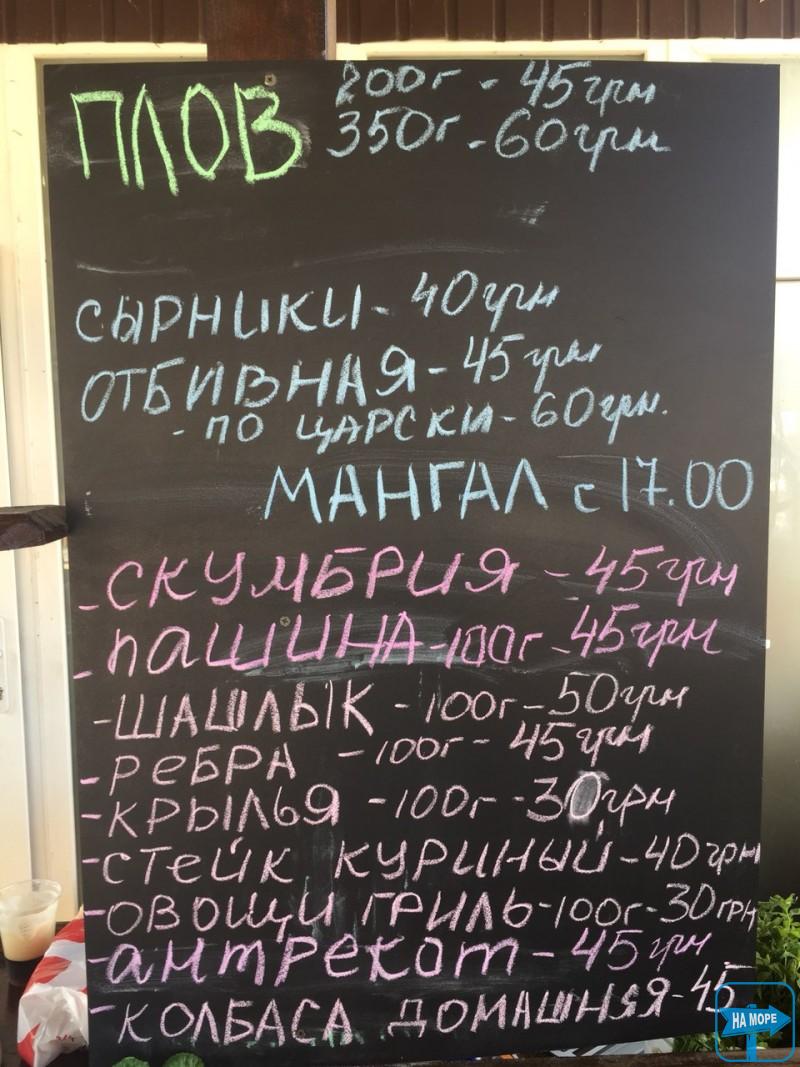 ПЛОВ 200г - 45грн
350г - 60грн
СЫРНИКИ - 40грн
ОТБИВНАЯ - 45грн
- ПО ЦАРСКИ - 60грн.
МАНГАЛ с 17.00
- СКУМБРИЯ - 45грн
- ПАШИНА - 100г - 45грн
- ШАШЛЫК - 100г - 50грн
- РЕБРА - 100г - 45грн
- КРЫЛЬЯ - 100г - 30грн
- СТЕЙК КУРИНЫЙ - 40грн
- ОВОЩИ ГРИЛЬ - 100г - 30грн
- антрекот - 45грн
- КОЛБАСА ДОМАШНЯЯ - 45
НА МОРЕ